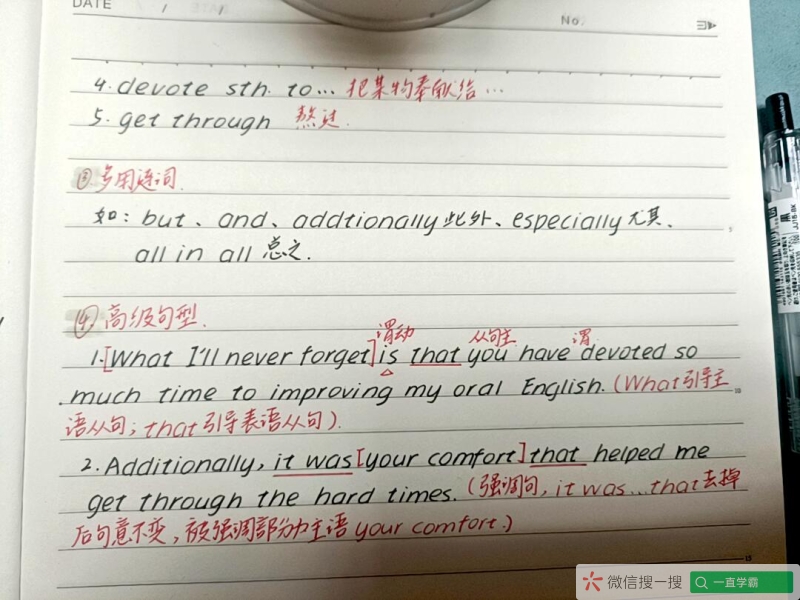 DATE / /
No.
4. devote sth. to... 把某物奉献给...
5. get through 熬过.
③多用连词.
如: but、and、addtionally此外、especially尤其、
all in all 总之.
④高级句型.
谓动 从句主 谓
1.[What I'll never forget] is that you have devoted so
much time to improving my oral English. (What引导主
语从句; that引导表语从句).
2. Additionally, it was [your comfort] that helped me
get through the hard times. (强调句, it was...that去掉
后句意不变, 被强调部分为主语 your comfort.)
15
微信搜一搜 一直学霸